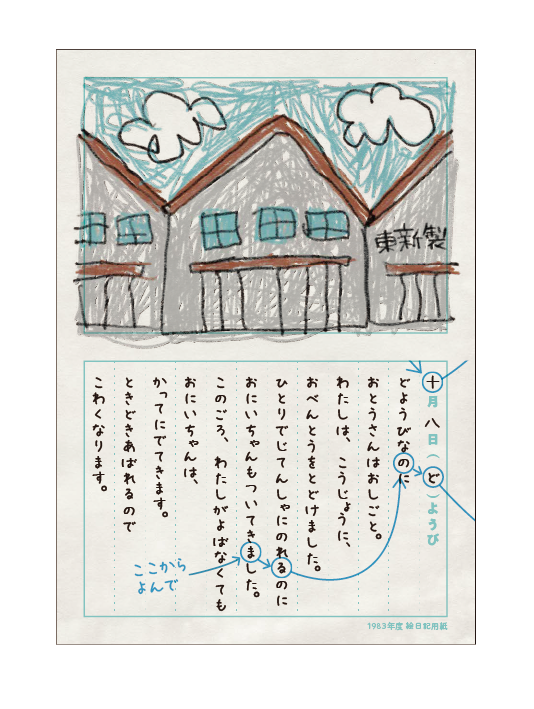 東新製
十月八日(ど)ようび
どようびなのに
おとうさんはおしごと。
わたしは、こうじょうに、
おべんとうをとどけました。
ひとりでじてんしゃにのれるのに
おにいちゃんもついてきました。
このごろ、わたしがよばなくても
おにいちゃんは、
かってにでてきます。
ときどきあばれるので
こわくなります。
ここから
よんで
1983年度 絵日記用紙